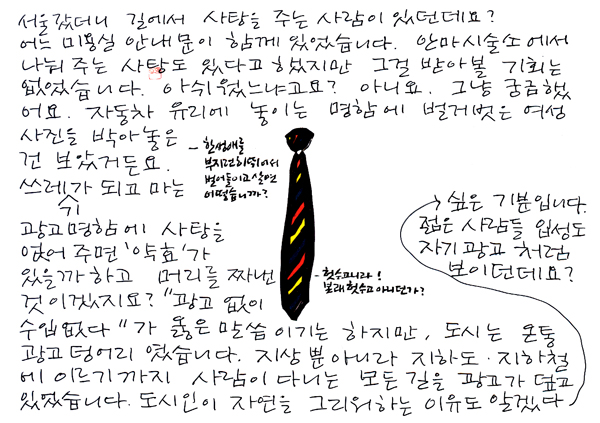 서울 갔더니 길에서 사탕을 주는 사람이 있던데요?
어느 미용실 안내문이 함께 있었습니다. 안마시술소에서
나눠 주는 사탕도 있다고 했지만 그걸 받아볼 기회는
없었습니다. 아쉬웠느냐고요? 아니요. 그냥 궁금했
어요. 자동차 유리에 놓이는 명함에 벌거벗은 여성
사진을 박아놓은
건 보았거든요.
쓰레가 되고 마는
기
광고명함에 사탕을
얹어 주면 '약효'가
있을까 하고 머리를 짜낸
것이겠지요? "광고 없이
수입없다"가 옳은 말씀이기는 하지만, 도시는 온통
광고덩어리였습니다. 지상뿐아니라 지하도·지하철
에 이르기까지 사람이 다니는 모든 길을 광고가 덮고
있었습니다. 도시인이 자연을 그리워하는 이유도 알겠다
싶은 기분입니다.
젊은 사람들 입성도
자기 광고처럼
보이던데요?
부지런히 뛰어서
벌어들이고 살면
어떻습니까?
- 헛수고니라!
본래 헛수고 아니던가?